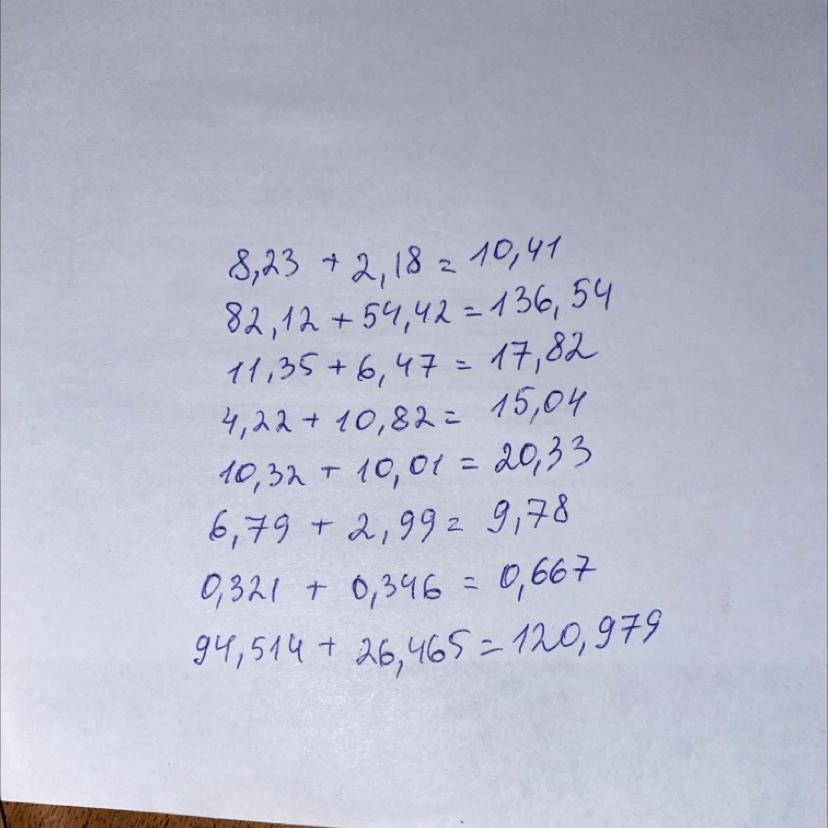 8,23 + 2,18 = 10,41
82,12 + 54,42 = 136,54
11,35 + 6,47 = 17,82
4,22 + 10,82 = 15,04
10,32 + 10,01 = 20,33
6,79 + 2,99 = 9,78
0,321 + 0,346 = 0,667
94,514 + 26,465 = 120,979